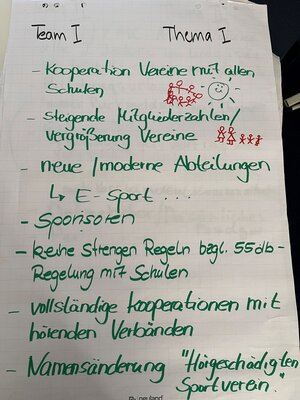 Team I Thema I
- Kooperation Vereine mit allen
Schulen
- steigende Mitgliederzahlen/
vergrößerung Vereine
- neue/moderne Abteilungen
↳ E-Sport ...
- Sponsoren
- keine strengen Regeln bzgl. 55db-
Regelung mit Schulen
- vollständige Kooperationen mit
hörenden Verbänden
- Namensänderung "Hörgeschädigten
Sportverein."
neuland